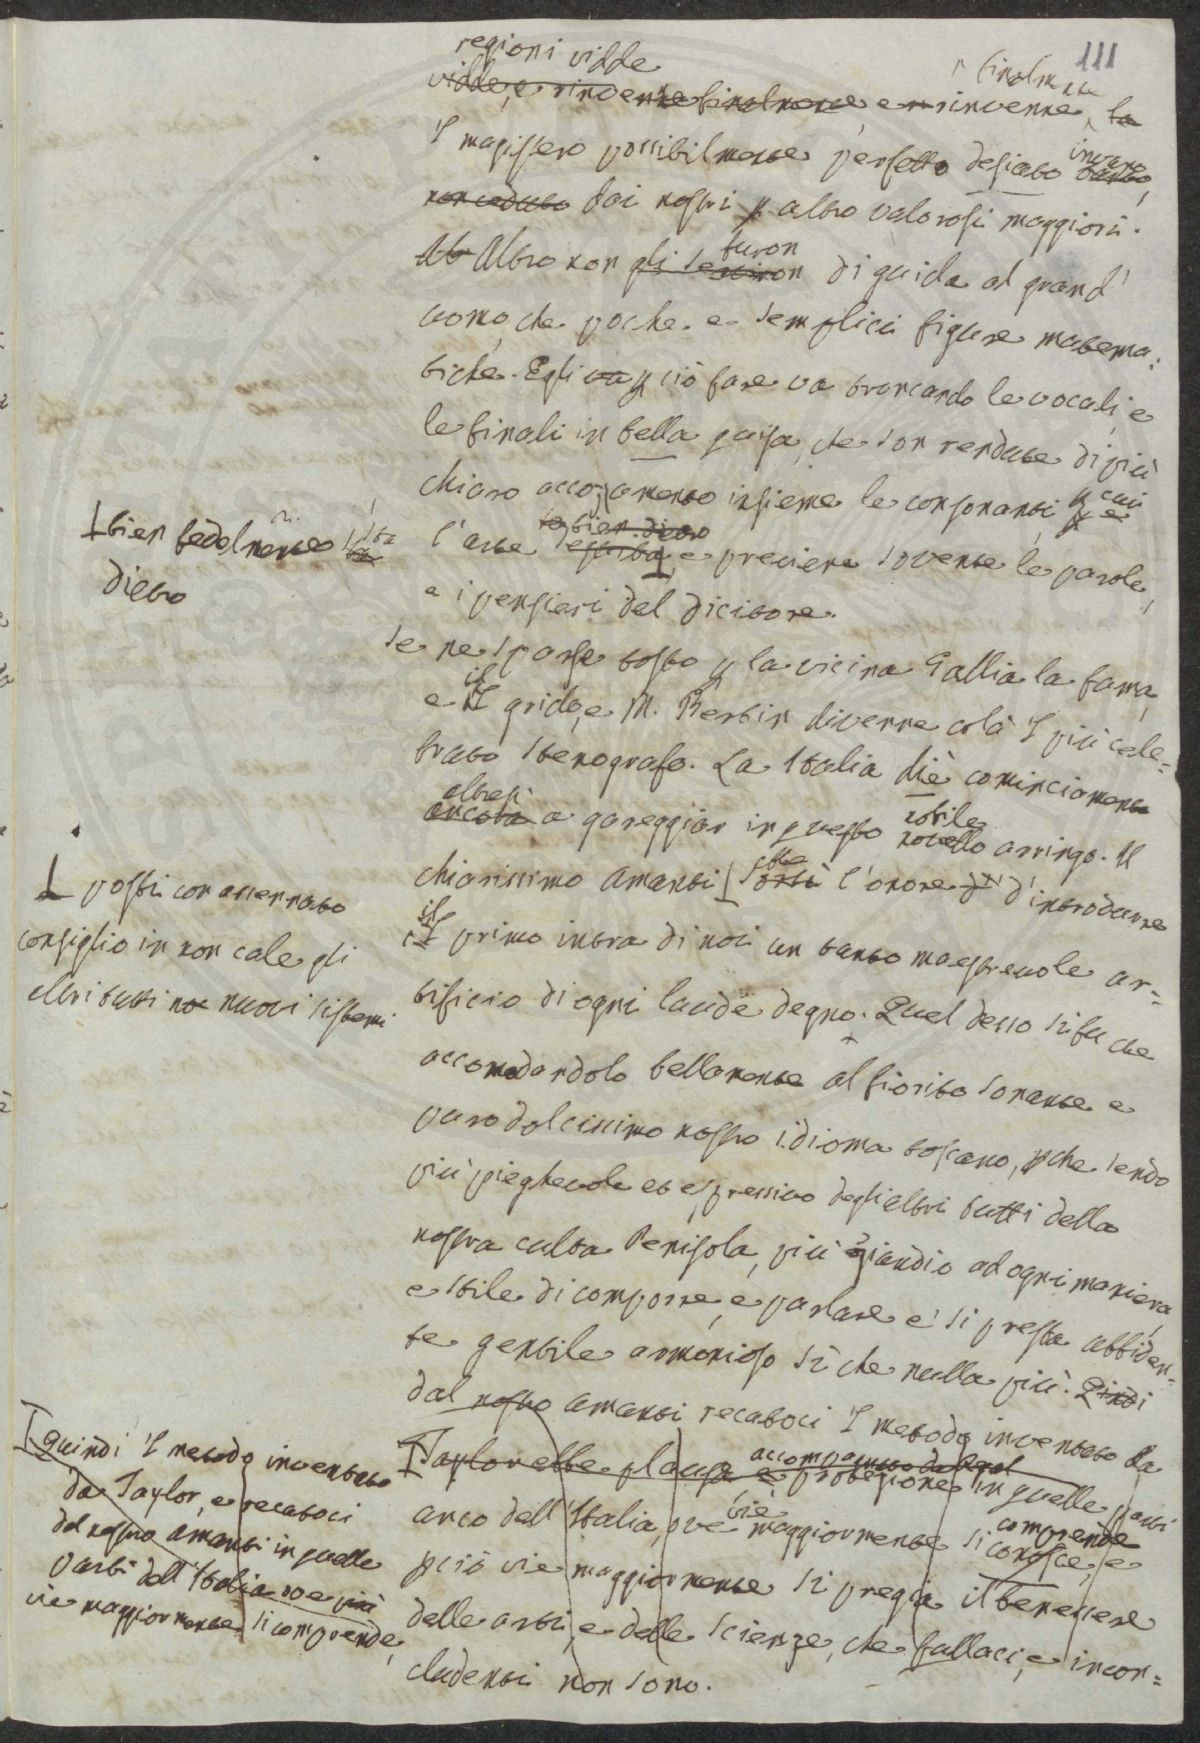 111
regioni vidde
vidde, e rinvenne finalmente e rinvenne finalmente, la
'l magistero possibilmente perfetto desiato invano tanto,
non veduto dai nostri p altro valorosi maggiori.
Alt Altro non gli servivon furon di guida al grand'
uomo che poche e semplici figure matema:
tiche. Egli va p ciò fare va troncando le vocali, e
le finali in bella guisa, che son rendute di più
chiaro accozzamento insieme le consonanti p cui
l'arte seguita tien dietro, e previene sovente le parole,
e i pensieri del dicitore.
⊥ tien fedelmente
dietro
se ne sparse tosto p la vicina Gallia la fama,
e il grido, e M. Bertin divenne colà 'l più cele=
brato stenografo. La Italia diè cominciamento
ancora altresì a gareggiar in questo novello nobile arringo. Il
chiarissimo Amanti ⊥ sortì ebbe l'onore di d'introdurre
il 'l primo intra di noi un tanto maestrevole ar=
tificio di ogni laude degno. Quel desso si fu che
accomodandolo bellamente al fiorito sonante e
puro dolcissimo nostro idioma toscano, pche sendo
più pieghevole ed espressivo degli altri tutti della
nostra culta Penisola, più eziandio ad ogni maniera,
e stile di comporre, e parlare e' si presta abbiden=
te gentile armonioso sì che nulla più. Quindi
⊥ posti con assennato
consiglio in non cale gli
altri tutti no nuovi sistemi
dal nostro Amanti recatoci 'l metodo inventato da
Taylor ebbe plauso e protezione accompagnato in quelle parti
anco dell'Italia, ove vie maggiormente si conosce, comprende e
pciò vie maggiormente si pregia il benessere
delle arti, e delle scienze, che fallaci, e incon=
cludenti non sono.
Quindi 'l metodo inventato
da Taylor, e recatoci
dal nostro Amanti in quelle
parti dell'Italia ove più
vie maggiormente si comprende,